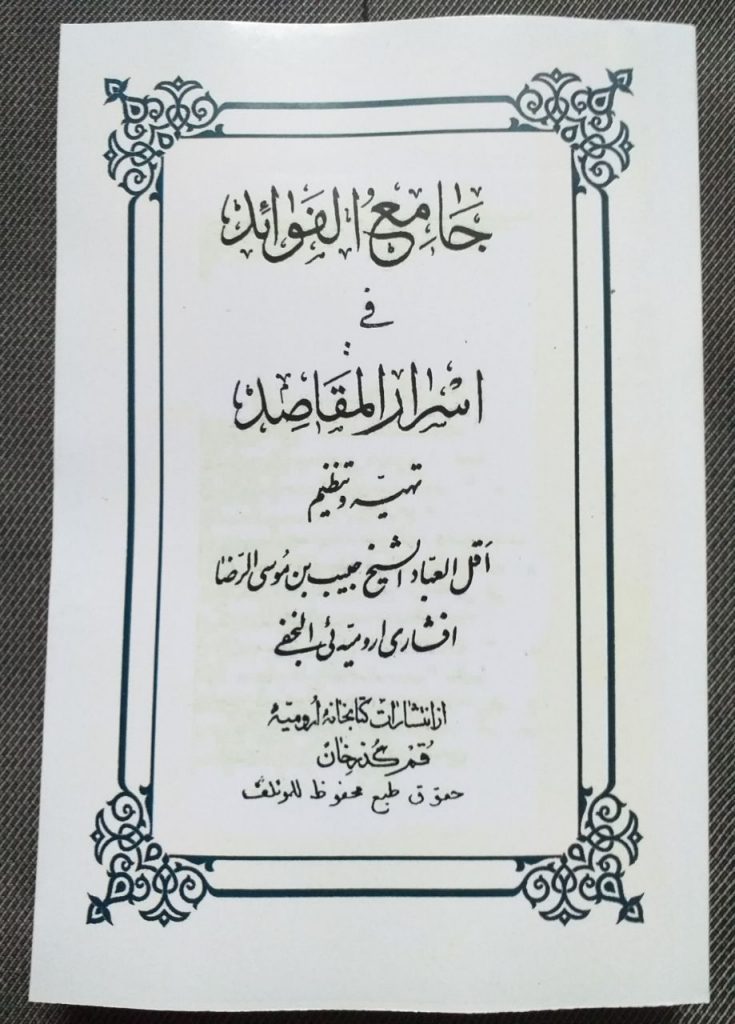 جَامِعُ الفَوَائد
في
اسْرَار المَقَاصِد
تهیّه وتنظیم
اَقل العبّاد الشیخ حبیب بن مُوسی الرّضا
افشاری ارومیّه ئی النجفے
از انتشارات کتابخانهٔ اُرومیّه
قُم گذرخان
حقوق طبع محفوظ للمؤلف